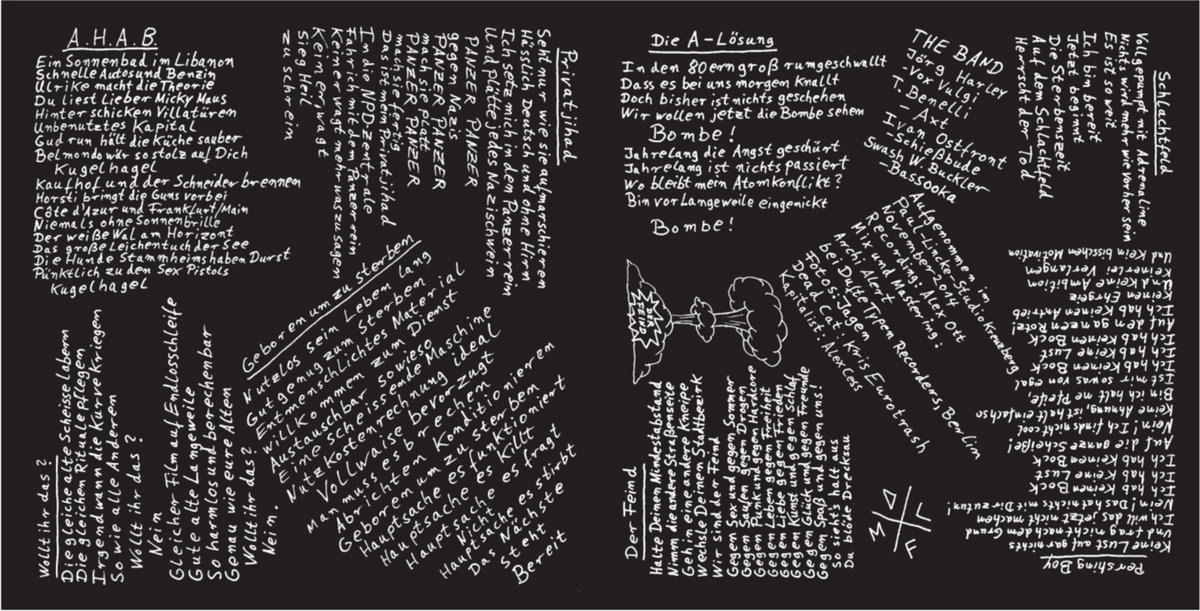 A.H.A.B.
Ein Sonnenbad im Libanon
Schnelle Autos und Benzin
Ulrike macht die Theorie
Du liest Lieber Micky Maus
Hinter schicken Villatüren
Unbenutztes Kapital
Gudrun hält die Küche sauber
Belmondo wär so stolz auf Dich
Kugelhagel
Kaufhof und der Schneider brennen
Horsti bringt die Guns vorbei
Côte d'Azur und Frankfurt/Main
Niemals ohne Sonnenbrille
Der weiße Wal am Horizont
Das große Leichentuch der See
Die Hunde Stammheims haben Durst
Pünktlich zu den Sex Pistols
Kugelhagel
Privatjihad
Seht nur wie sie aufmarschieren
Hässlich Deutsch und ohne Hirn
Ich setz mich in den Panzer rein
Und plätte jedes Nazischwein
PANZER PANZER
gegen Nazis
PANZER PANZER
mach sie platt
PANZER PANZER
mach sie fertig
Das ist mein Privatjihad
In die NPD-Zentrale
Fahr ich mit dem Panzer rein
Keiner wagt mehr was zu sagen
Keiner wagt
Sieg Heil
zu schrein
Wollt ihr das?
Die gleiche alte Scheisse labern
Die gleichen Rituale pflegen
Irgendwann die Kurve kriegen
So wie alle Anderen
Wollt ihr das?
Nein
Gleicher Film auf Endlosschleife
Gute alte Langeweile
So harmlos und berechenbar
Genau wie eure Alten
Wollt ihr das?
Nein.
Geboren um zu sterben
Nutzlos sein Leben lang
Gut genug zum Sterben
Entmenschlichtes Material
Willkommen zum Dienst
Austauschbar sowieso
Eine scheissende Maschine
Nutzkostenrechnung ideal
Vollwaise bevorzugt
Man muss es brechen
Abrichten Konditionieren
Geboren um zu sterben
Hauptsache es funktioniert
Hauptsache es killt
Hauptsache es fragt
Nicht
Hauptsache es stirbt
Das Nächste
steht
Bereit
Die A-Lösung
In den 80ern groß rumgeschwallt
Dass es bei uns morgen knallt
Doch bisher ist nichts geschehen
Wir wollen jetzt die Bombe sehen
Bombe!
Jahrelang die Angst geschürt
Jahrelang ist nichts passiert
Wo bleibt mein Atomkonflikt?
Bin vor Langeweile eingenickt
Bombe!
THE BAND
Jörg Harley
-Vox Vulgi
T. Benelli
- Axt
Ivan Ostfront
-Schießbude
Swash W. Buckler
-Bassooka
Schlachtfeld
Vollgepumpt mit Adrenaline
Nichts wird mehr wie vorher sein
Es ist so weit
Ich bin bereit
Jetzt beginnt
Die Sterbenszeit
Auf dem Schlachtfeld
Herrscht der Tod
Aufgenommen im
Paul-Lincke-Studio Kreuzberg
November 2014
Recording: Alex Ott
Mix und Mastering:
Irchi Alert
bei Dufte Typen Recorders, Berlin
Fotos: Jagen
Dead Cat: Kris Eurotrash
Kapitalist: Alex Cess
DER FEIND
Der Feind
Halte Deinen Mindestabstand
Nimm die andere Straßenseite
Geh in eine andere Kneipe
Wechsle Deinen Stadtbezirk
Wir sind der Feind
Gegen Sex und gegen Sommer
Gegen Saufen gegen Drogen
Gegen Punk und gegen Hardcore
Gegen Leben gegen Freiheit
Gegen Liebe gegen Frieden
Gegen Kunst und gegen Schlaf
Gegen Glück und gegen Freunde
Gegen Spaß und gegen uns!
So sieht's halt aus
Du blöde Drecksau
M D L F
Pershing Boy
Keine Lust auf gar nichts
Und frag nach dem Grund
Ich will das jetzt nicht machen
Nein! Das hat nichts mit Dir zu tun!
Ich hab keinen Bock
Ich hab keine Lust
Ich hab keinen Bock
Auf die ganze Scheiße!
Nein! Ich finds nicht cool
Keine Ahnung, ist halt einfach so
Bin ich halt ne Pfeife,
Ist mir sowas von egal
Ich hab keinen Bock
Ich hab keine Lust
Ich hab keinen Bock
Auf den ganzen Rotz!
Ich hab keinen Antrieb
Keinen Ehrgeiz
Und keine Ambition
Keinerlei Verlangen
Und kein bisschen Motivation